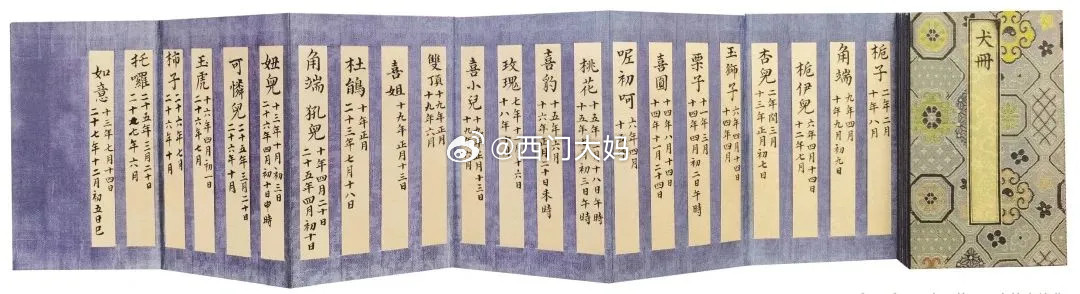 犬冊
栀子 二年二月 十年二月
角端 九年四月 十年八月初九日
栀伊兒 六年四月十四日 十二年七月
杏兒 二年閏三月 十三年正月初七日
玉獅子 六年四月十四日 十四年四月
栗子 十年三月 十四年四月初二日午時
喜圓 十年八月十四日 十四年十二月二十四日
呢初呵 六年四月 十
桃花 十五年 十八日午時 十五年 初三日午時
喜豹 十五年六月 十六年 二十日未時
玫瑰 七年 十八年 十六日
喜小兒 十九年正月十三日 十九
雙頂 十九年正月 十九年六月
喜姐 十九年正月十三日
杜鵑 十年正月 二十三年七月十八日
角端 犼兒 十年四月二十日 二十五年四月初十日
妞兒 十三年十月初三日 二十六年四月初十日申時
可憐兒 二十五年三月二十日 二十六年十月
玉虎 十六年四月初一日 二十年七月
柿子 二十六年七月 二十六年十月
托囉 二十五年三月二十日 二十九年六月
如意 二十三年七月十四日 二十七年十二月初五日巳
@西门大妈